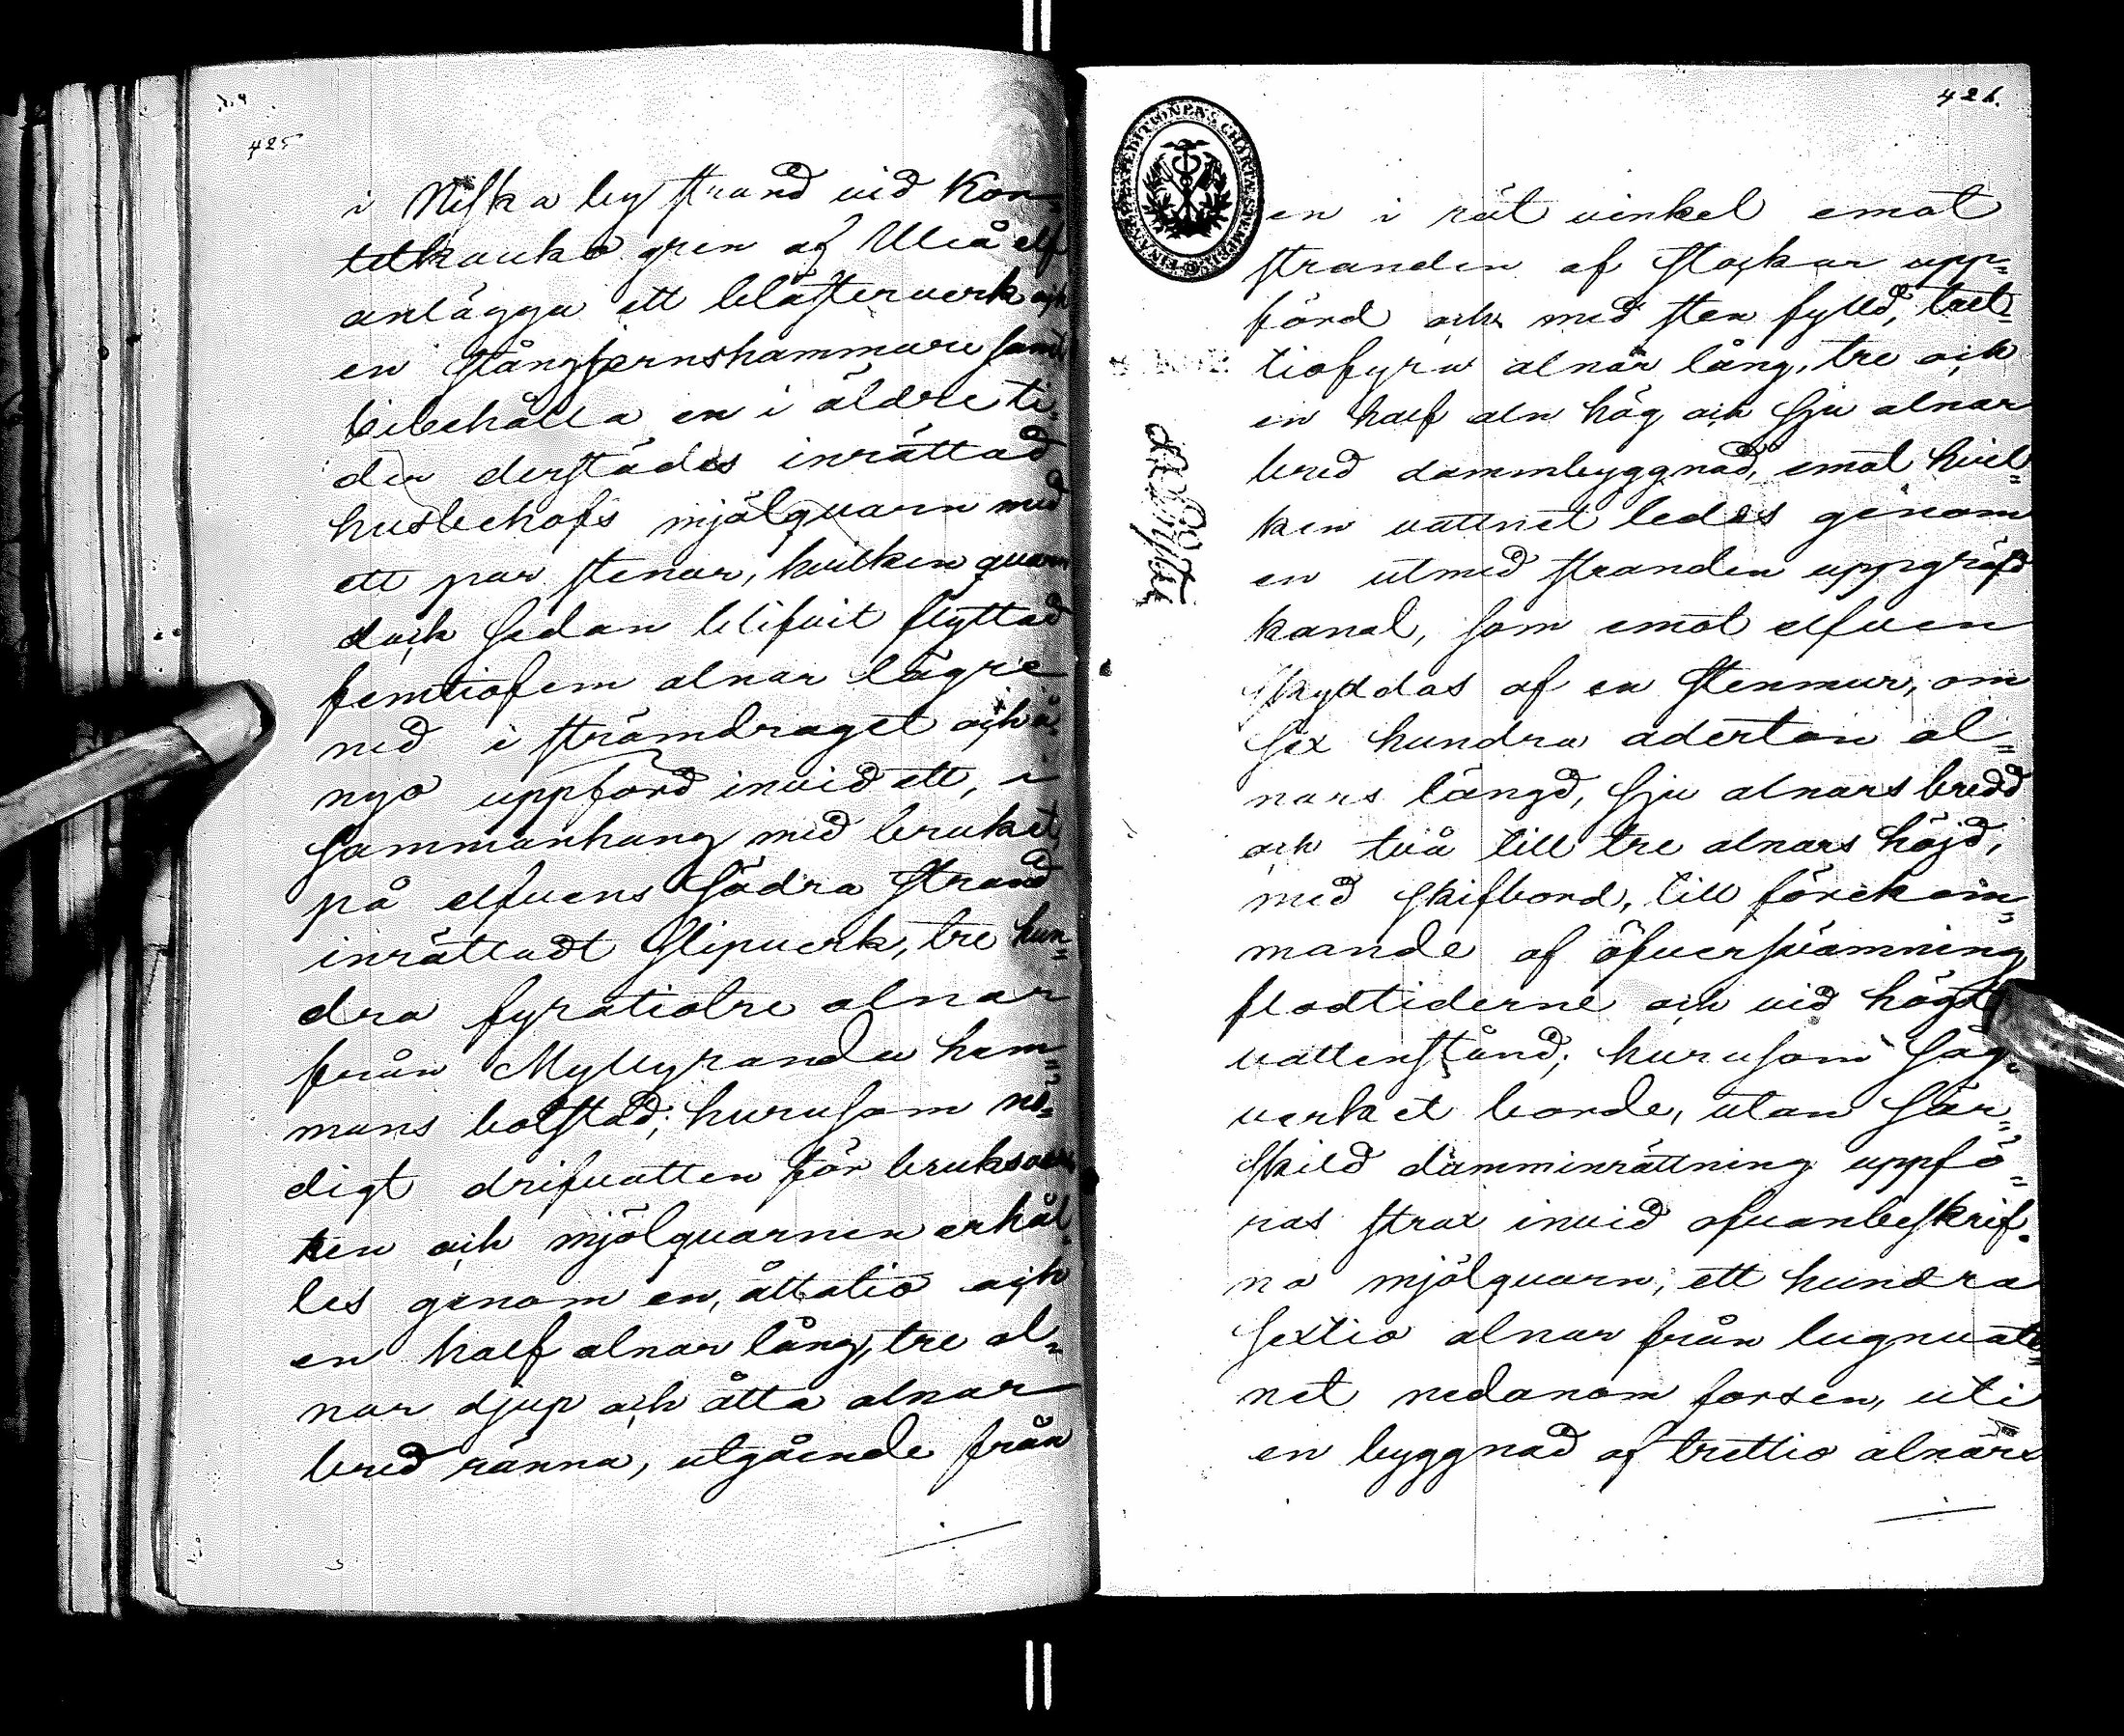 425
i Niska by strand vid Kon-
tetkauko gren af Uleå elf
anlägga ett blåsterverk och
en stångjernshammare samt
bibehålla en i äldre ti-
der derstädes inrättad
husbehofs mjölqvarn med
ett par stenar, hvilken qvarn
dock sedan blifvit flyttad
femtiofem alnar lägre
ned i strömdraget och å
nyo uppförd invid ett, i
sammanhang med bruket
på elfvens södra strand
inrättadt slipverk, tre hun-
dra fyratiotre alnar
från Myllyranda hem-
mans bolstad; hurusom nö-
digt drifvatten för bruksver
ken och mjölqvarnen erhål-
les genom en, åttatio och
en half alnar lång, tre al-
nar djup och åtta alnar
bred ränna, utgående från
426.
en i rät vinkel emot
stranden af stockar upp-
förd och med sten fylld, tret-
tiofyra alnar lång, tre och
en half aln hög och sju alnar
bred dammbyggnad, emot hvil-
ken vattnet ledes genom
en utmed stranden uppgräfd
kanal, som emot elfven
skyddas af en stenmur, om
sex hundra aderton al-
nars längd, sju alnars bredd
och två till tre alnars höjd,
med skifbord, till förekom-
mande af öfversvämning
flodtiderne och vid högt
vattenstånd; hurusom såg-
verket borde, utan sär-
skild damminrättning uppfö-
ras strax invid ofvanbeskrif-
na mjölqvarn, ett hundra
sextio alnar från lugnvatt-
net nedanom forsen, uti
en byggnad af trettio alnars